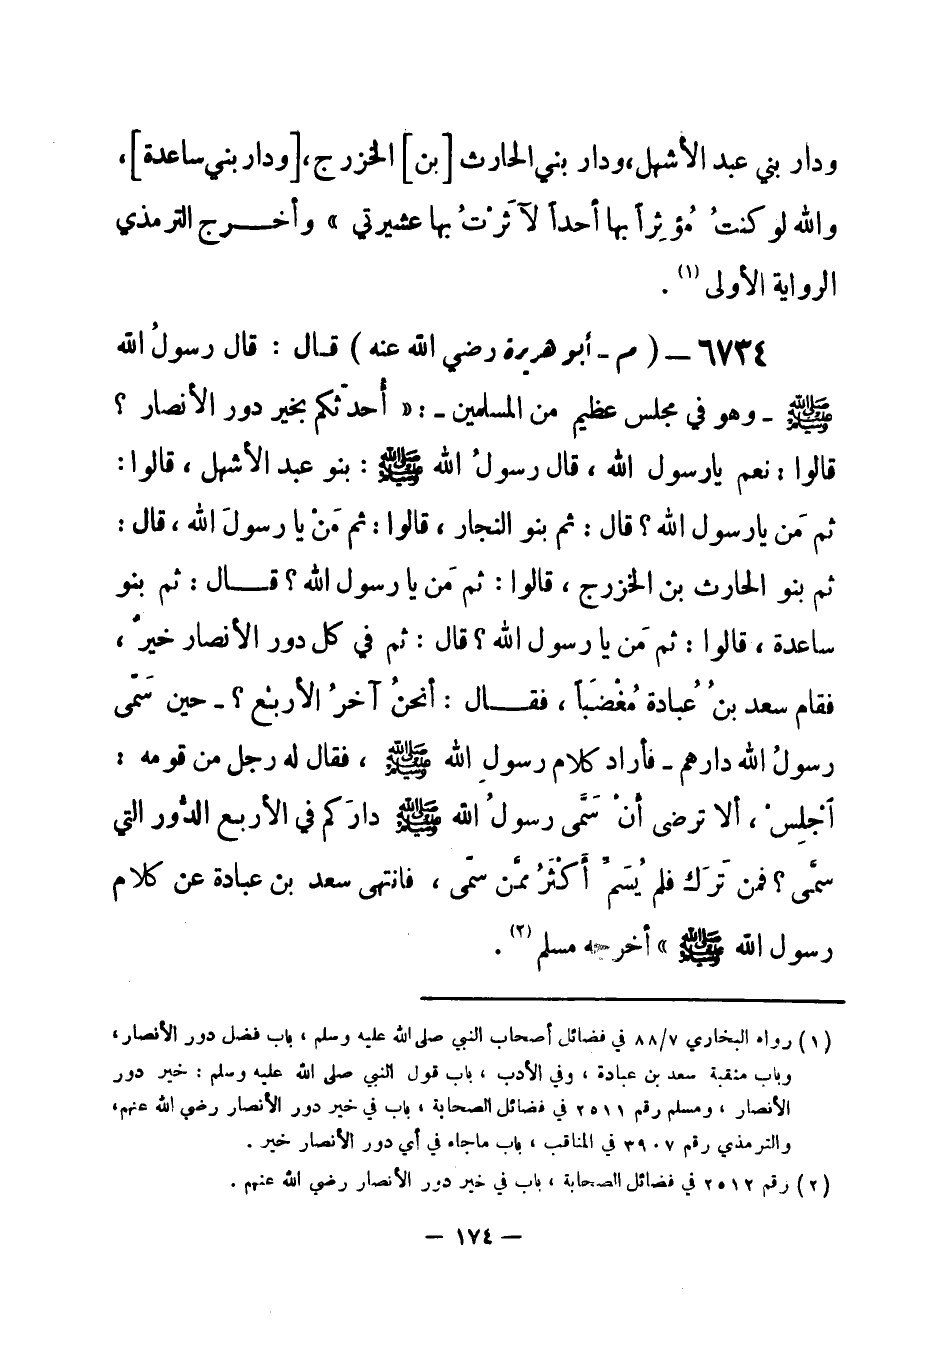 ودار بني عبد الأشهل، ودار بني الحارث [بن] الخزرج، [ودار بني ساعدة]،
والله لو كنتُ مُؤثِراً بها أحداً لآثَرْتُ بها عشيرتي » وأخرج الترمذي
الرواية الأولى (١) .
٦٧٣٤ – ( م - أبو هريرة رضي الله عنه ) قال : قال رسولُ الله
ﷺ - وهو في مجلس عظيم من المسلمين - : « أُحدِّثكم بخير دور الأنصار ؟
قالوا : نعم يارسول الله ، قال رسولُ الله ﷺ : بنو عبد الأشهل ، قالوا :
ثم مَن يارسول الله ؟ قال : ثم بنو النجار ، قالوا : ثم مَنْ يا رسولَ الله ، قال :
ثم بنو الحارث بن الخزرج ، قالوا : ثم مَن يا رسول الله ؟ قال : ثم بنو
ساعدة ، قالوا : ثم مَن يا رسول الله ؟ قال : ثم في كل دور الأنصار خيرٌ ،
فقام سعد بنُ عُبادة مُغْضَباً ، فقال : أنحنُ آخرُ الأربع ؟ - حين سَمّى
رسولُ الله دارهم - فأراد كلام رسولِ الله ﷺ ، فقال له رجل من قومه :
اَجْلِسْ ، ألا ترضى أنْ سَمَّى رسولُ الله ﷺ دارَكم في الأربع الدُّور التي
سمَّى ؟ فمن تَرَك فلم يُسَمِّ أَكْثَرُ ممَّن سمّى ، فانتهى سعد بن عبادة عن كلام
رسول الله ﷺ » أخرجه مسلم (٢) .
(١) رواه البخاري ٧/‏٨٨ في فضائل أصحاب النبي صلى الله عليه وسلم ، باب فضل دور الأنصار ،
وباب منقبة سعد بن عبادة ، وفي الأدب ، باب قول النبي صلى الله عليه وسلم : خير دور
الأنصار ، ومسلم رقم ٢٥١١ في فضائل الصحابة ، باب في خير دور الأنصار رضي الله عنهم ،
والترمذي رقم ٣٩٠٧ في المناقب ، باب ماجاء في أي دور الأنصار خير .
(٢) رقم ٢٥١٢ في فضائل الصحابة ، باب في خير دور الأنصار رضي الله عنهم .
– ١٧٤ –